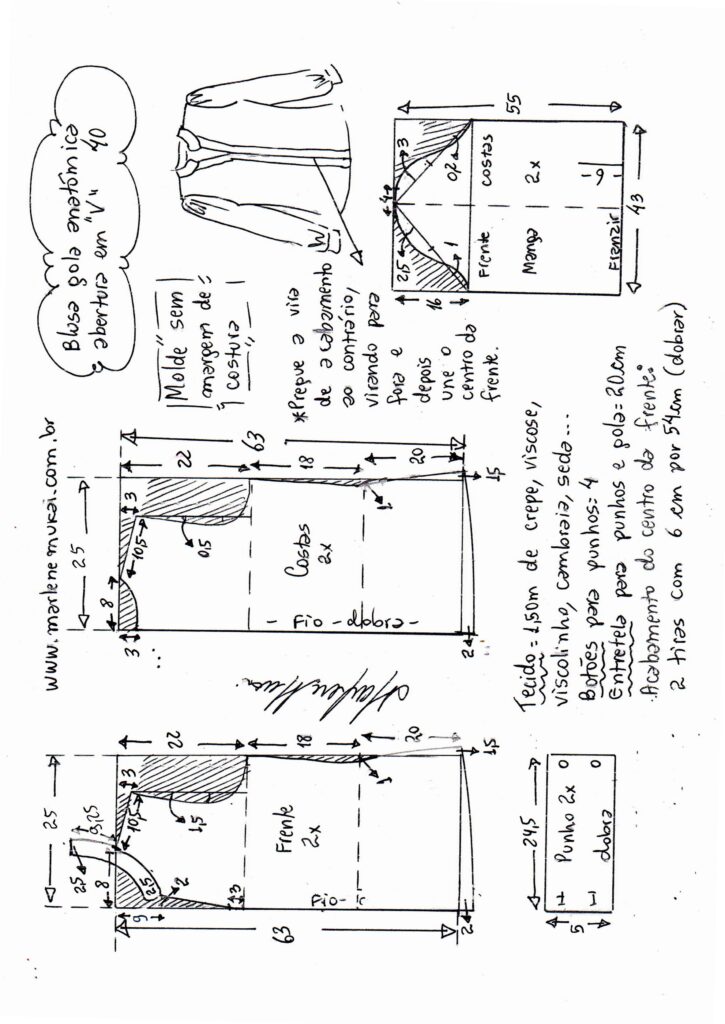 www.marlenemukai.com.br
Blusa gola anatômica
abertura em "V" 40
Molde sem
margem de
costura
*Pregue a vira
de acabamento
ao contrário,
virando para
fora e
depois
une o
centro da
frente.
25
8
9,25
2,5
10,5
3
22
1,5
2,5
2
9
3
Frente
2x
18
1
20
1,5
Fio-
2
63
25
8
3
10,5
3
22
0,5
Costas
2x
18
1
20
1,5
- Fio - dobra -
2
63
4
2,5
3
1
0,2
16
55
Frente
costas
Manga
2x
-9-
Franzir
43
24,5
Punho 2x
dobra
5
Tecido = 1,50m de crepe, viscose,
viscolinho, cambraia, seda...
Botões para punhos: 4
Entretela para punhos e gola = 20cm
Acabamento do centro da frente:
2 tiras com 6 cm por 54cm (dobrar)